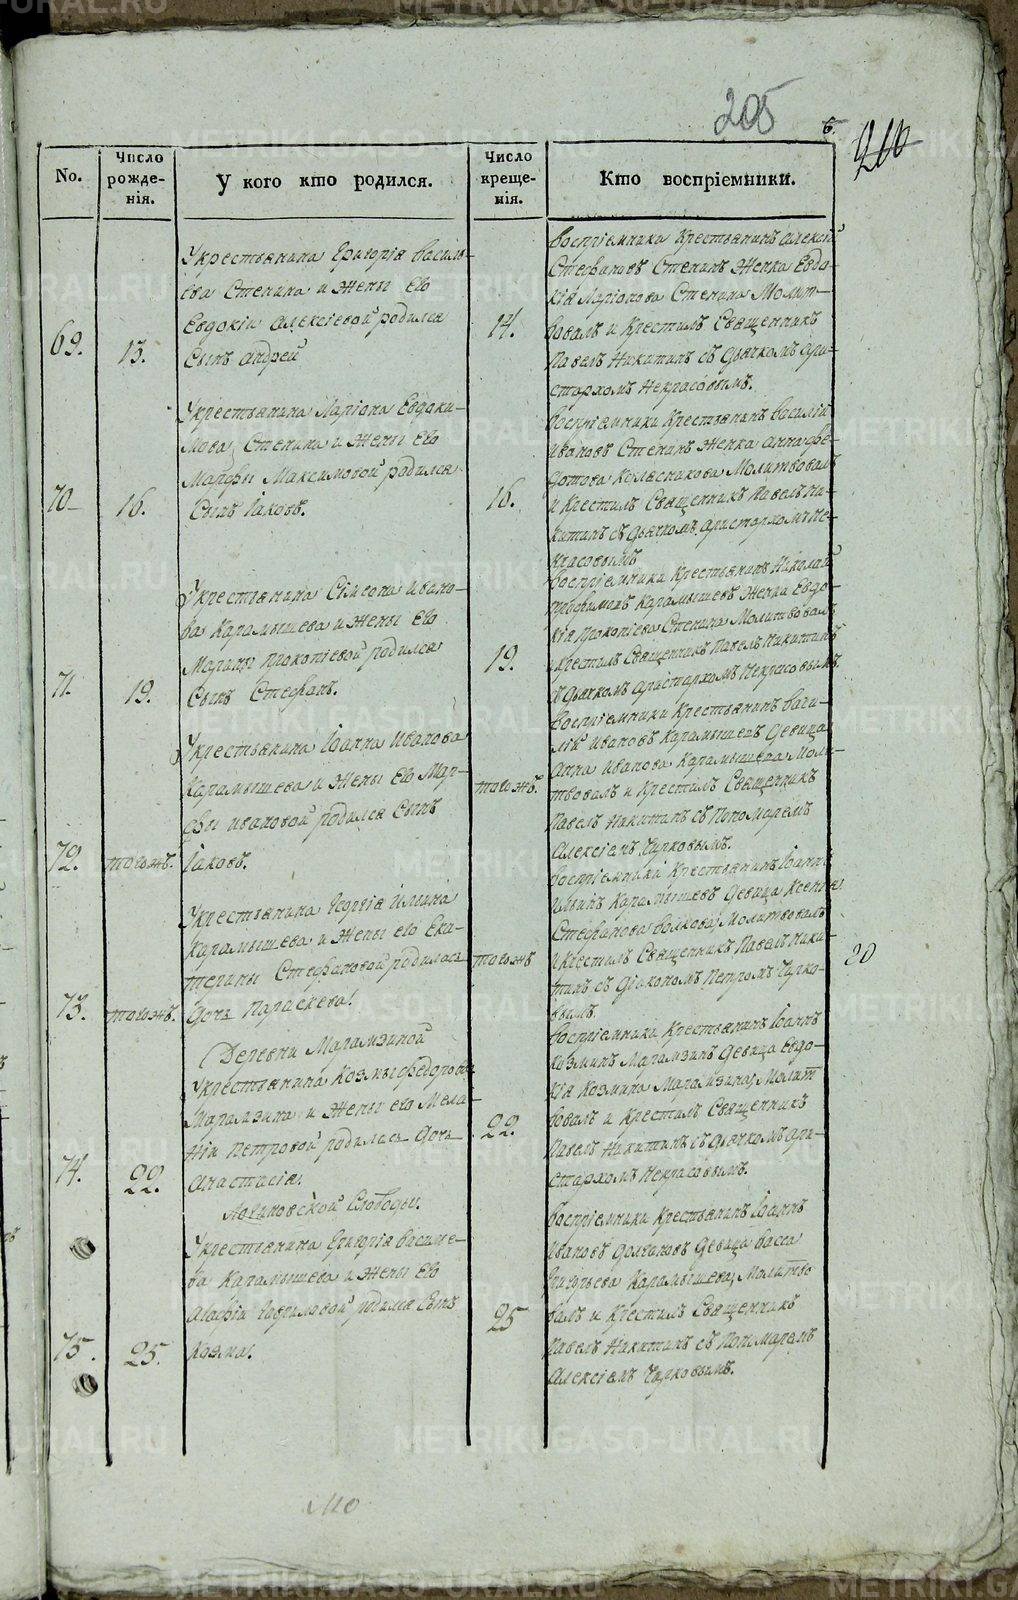 205
6.
210
No.
Число рожде-нія.
У кого кто родился.
Число креще-нія.
Кто воспріемники.
69.
13.
У крестьянина Григорія Василь-
ева Степина и жены Его
Евдокіи Алексіевой родился
Сынъ Андрей
14.
Воспріемники Крестьянинъ Алексій
Стефановъ Степинъ Женка Евдо-
кія Ларіонова Степина Молит-
вовалъ и Крестилъ Священникъ
Павелъ Никитинъ съ Дьячкомъ Ари-
стархомъ Некрасовымъ.
70
16.
У крестьянина Ларіона Евдоки-
мова Степина и Жены Его
Марфы Максимовой родился
Сынъ Іаковъ.
16.
Воспріемники Крестьянинъ Василій
Ивановъ Степинъ Женка Анна Фе-
дотова Колесникова Молитвовалъ
и Крестилъ Священникъ Павелъ Ни-
китинъ съ Дьячкомъ Аристархомъ Не-
красовымъ
71.
19.
У крестьянина Сімеона Ивано-
ва Карамышева и Жены Его
Марины Прокопіевой родился
Сынъ Стефанъ.
19.
Воспріемники Крестьянинъ Николай
Трофимовъ Карамышевъ Женка Евдо-
кія Прокопіева Степина Молитвовалъ
и крестилъ Священникъ Павелъ Никитинъ
съ Дьячкомъ Аристархомъ Некрасовымъ.
72.
тогожъ.
У крестьянина Іоанна Иванова
Карамышева и Жены Его Мар-
фы Ивановой родился Сынъ
Іаковъ.
тогожъ.
Воспріемники Крестьянинъ Васи-
лій Ивановъ Карамышевъ Девица
Анна Иванова Карамышева Моли-
твовалъ и Крестилъ Священникъ
Павелъ Никитинъ съ Пономаремъ
Алексіемъ Чирковымъ.
73.
тогожъ.
У крестьянина Георгія Ильина
Карамышева и Жены его Ека-
терины Стефановой родилась
Дочь Параскева.
тогожъ
Воспріемники Крестьянинъ Іоаннъ
Ильинъ Карамышевъ Девица Ксенія
Стефанова Волкова Молитвовалъ
и Крестилъ Священникъ Павелъ Ники-
тинъ съ Діакономъ Петромъ Чирко-
вымъ.
20
Деревни Марамзиной
74.
22.
У крестьянина Козмы Федорова
Марамзина и Жены его Мела-
ніи Петровой родилась Дочь
Анастасія.
22.
Воспріемники Крестьянинъ Іоаннъ
Козминъ Марамзинъ Девица Евдо-
кія Козмина Марамзина Молит
вовалъ и Крестилъ Священникъ
Павелъ Никитинъ съ Дьячкомъ Ари-
стархомъ Некрасовымъ.
Слободы.
75.
25.
У крестьянина Григорія Василье-
ва Карамышева и Жены Его
Агафіи Гавриловой родился Сынъ
Козма.
25
Воспріемники Крестьянинъ Іоаннъ
Ивановъ Девица Васса
Григорьева Карамышева Молитво
валъ и Крестилъ Священникъ
Павелъ Никитинъ съ Пономаремъ
Алексіемъ Чирковымъ.